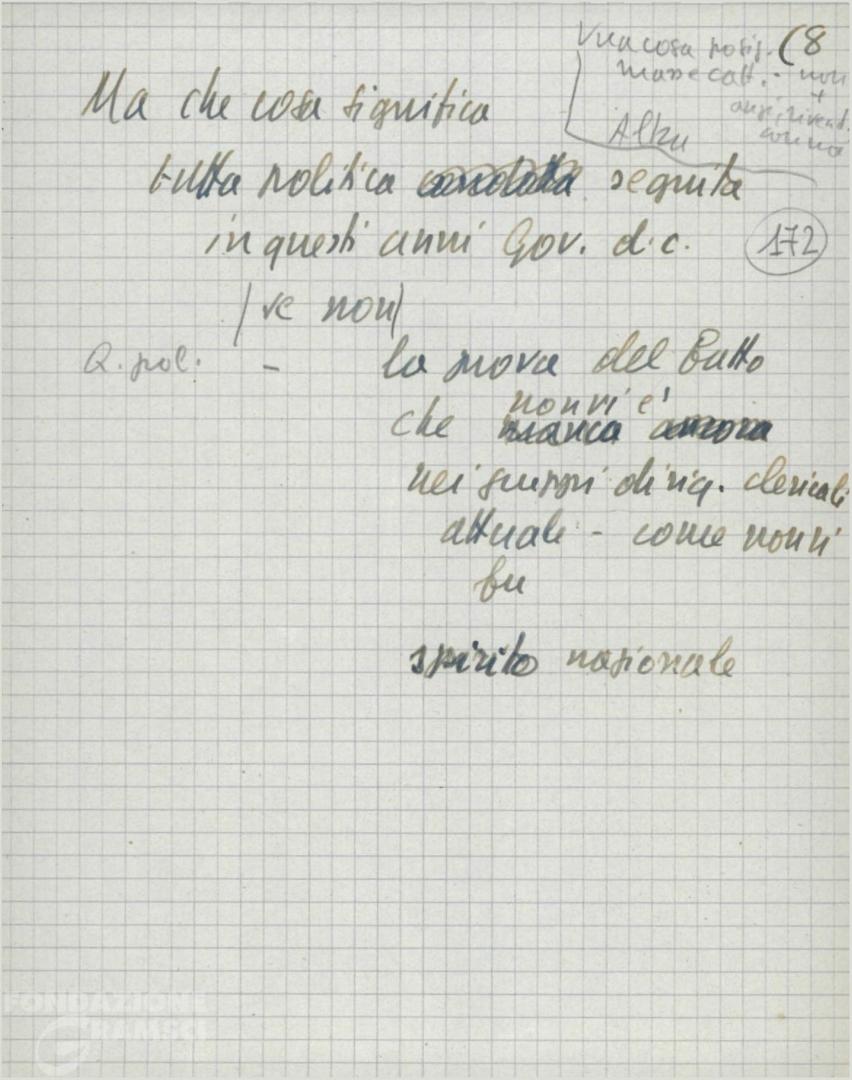 Una cosa posiz. (8
masse catt. - non
+
anzi, rivend.
Altra
Ma che cosa significa
tutta politica condotta seguita
in questi anni Gov. d.c. 172
(se non)
Q. pol. - la prova del fatto
non vi è
che manca ancora
nei gruppi dirig. clericali
attuale - come non vi
fu
spirito nazionale
FONDAZIONE
GRAMSCI